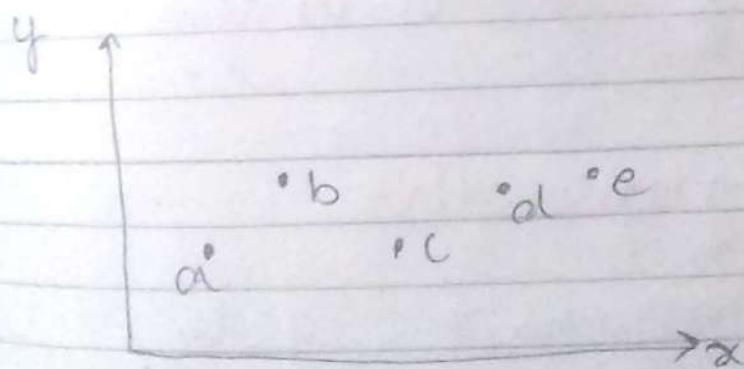 y
b
d e
a c
x